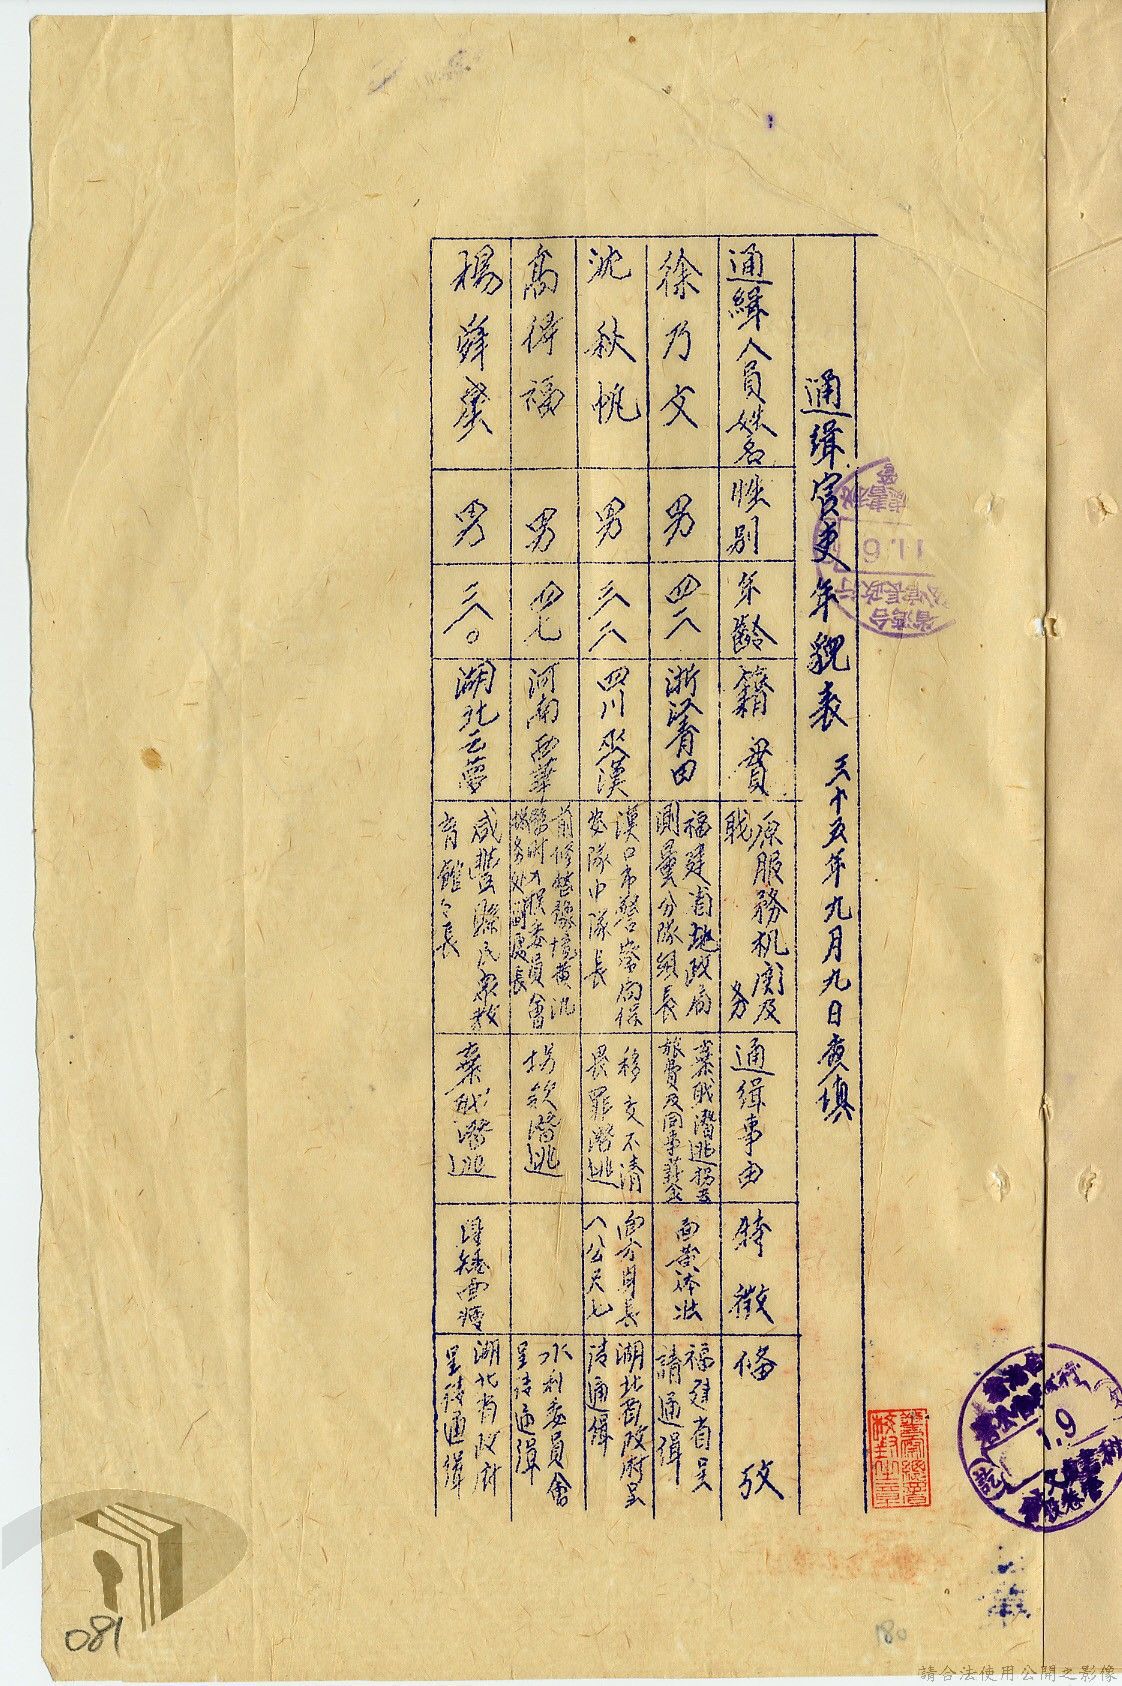 通緝官吏年貌表 三十五年九月九日廣填
通緝人員姓名 性別 年齡 籍貫 原服務机関及職务 通緝事由 特徵 俻攷
徐乃文 男 四二 浙江青田 福建省地政局測量分隊組長 棄職潛逃拐去旅費及同事薪金 面黄体壯 福建省呈請通緝
沈秋帆 男 三八 四川巫溪 漢口市警察局保安隊中隊長 移交不清畏罪潛逃 面方身長 湖北省政府呈请通緝
高得福 男 四七 河南西華 拐欵潛逃 水利委員會呈请通緝
楊舜 男 三八。 湖北云夢 咸豐縣民衆教育館々長 棄职潛逃 身矮面瘦 湖北省政府呈请通緝
台灣省行政長官公署
11.6
1.9
081
180
請合法使用公開之影像